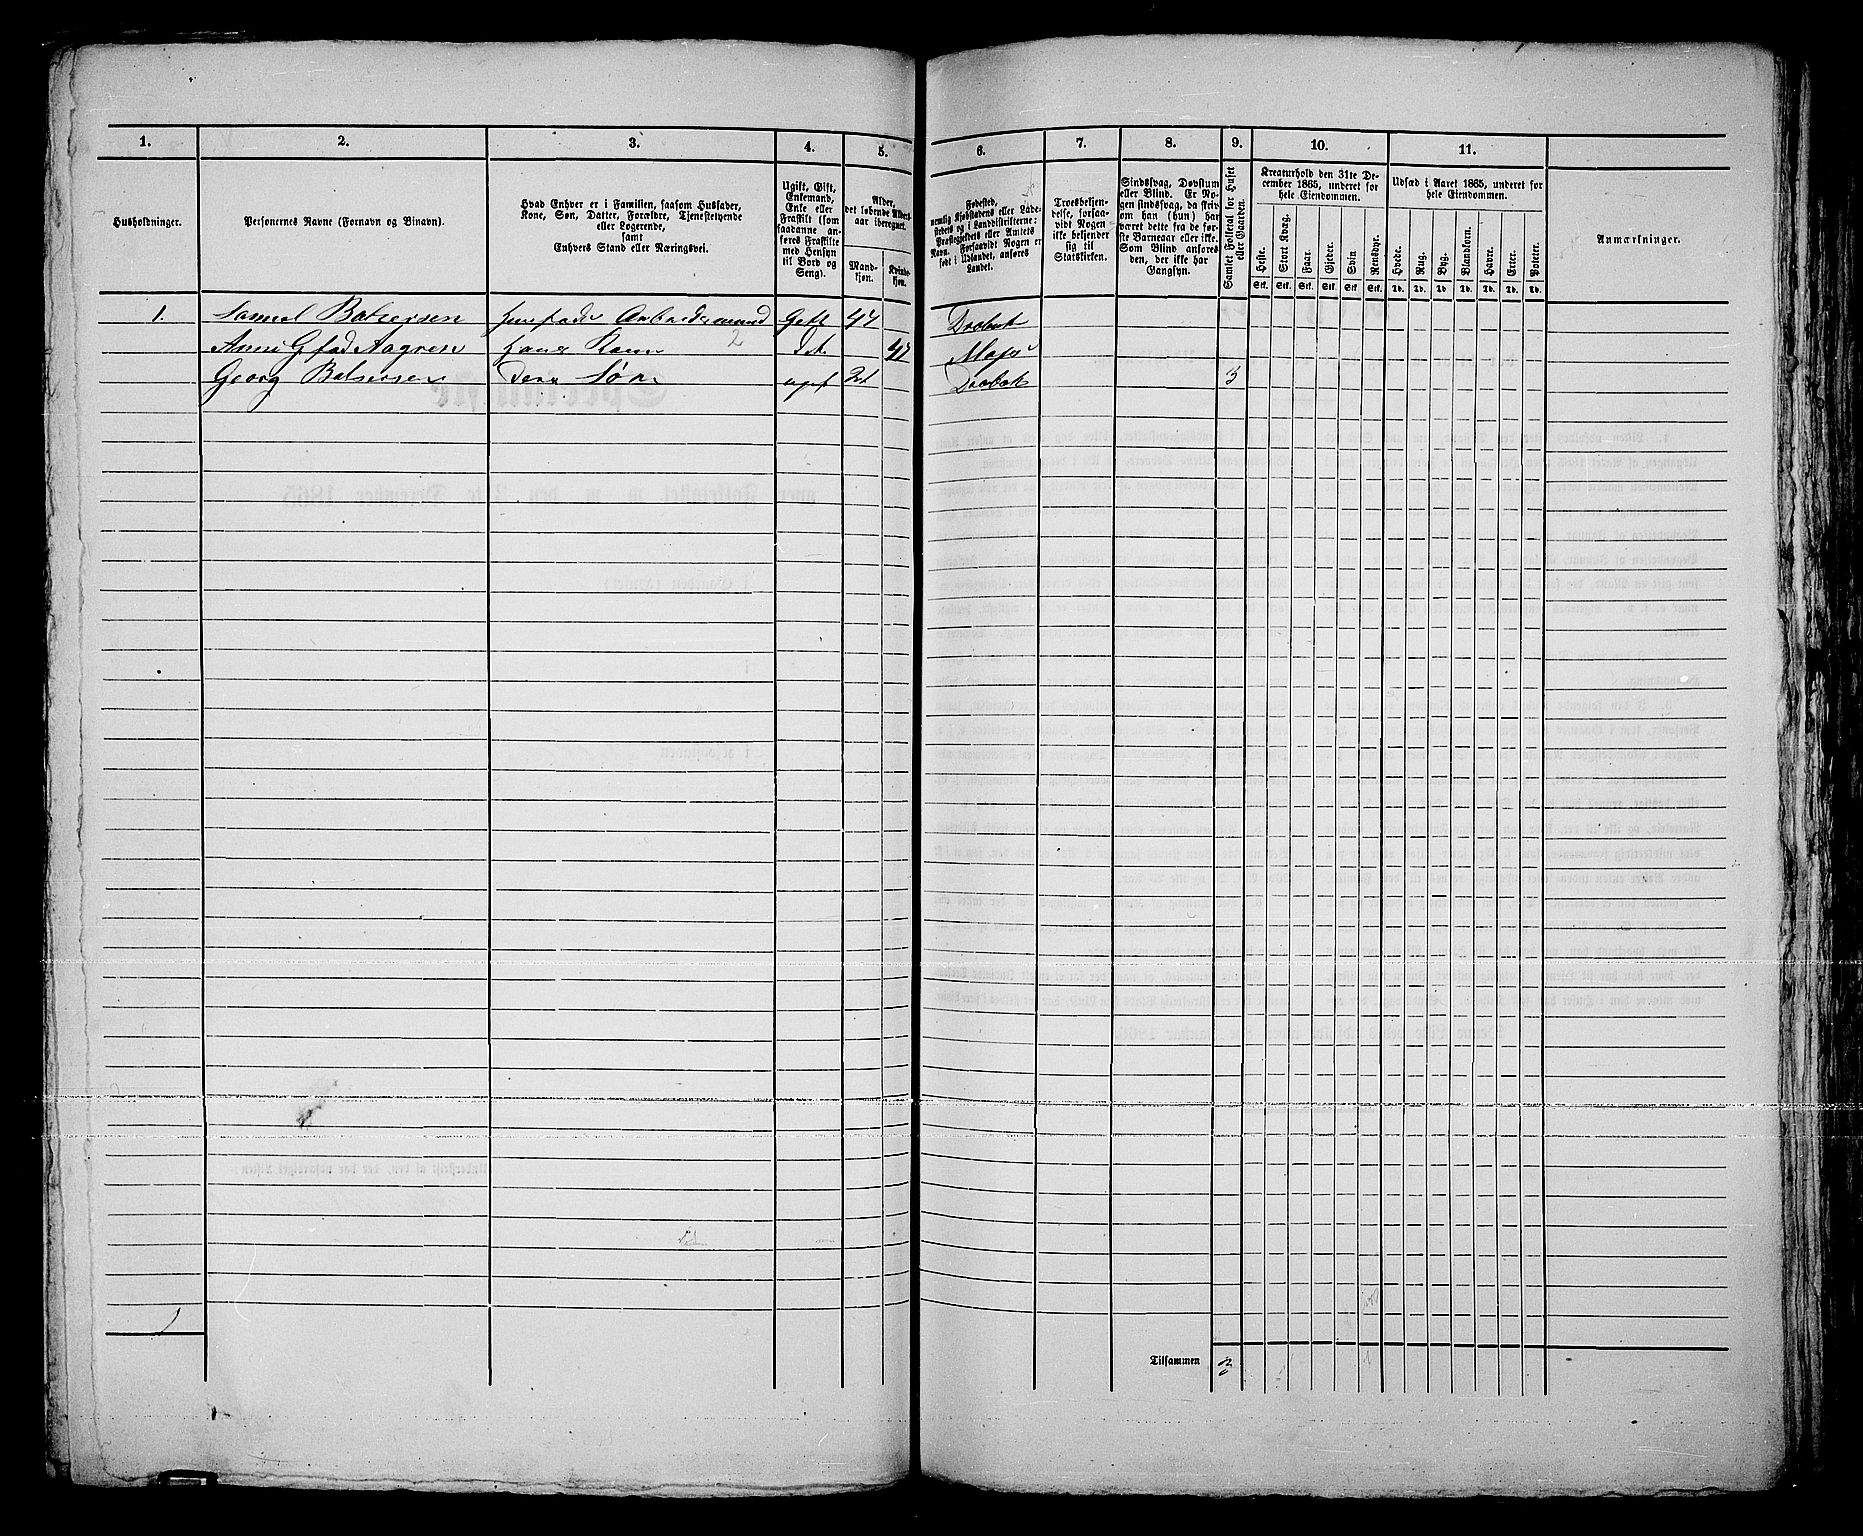 1.
2.
3.
4.
5.
6.
7.
8.
9.
10.
11.
Husholdninger.
Personernes Navne (Fornavn og Binavn).
Hvad Enhver er i Familien, saasom Husfader,
Kone, Søn, Datter, Forældre, Tjenestetyende
eller Logerende,
samt
Enhvers Stand eller Næringsvei.
Ugift, Gift,
Enkemand,
Enke eller
Fraskilt (som
saadanne an-
føres Fraskilte
med Hensyn
til Bord og
Seng).
Alder,
det løbende Alders-
aar iberegnet.
Mand-
kjøn.
Kvinde-
kjøn.
Fødested,
nemlig Kjøbstadens eller Lade-
stedets og i Landdistrikterne:
Præstegjeldets eller Amtets
Navn. Forsaavidt Nogen er
født i Udlandet, anføres
Landet.
Troesbekjen-
delse, forsaa-
vidt Nogen
ikke bekjender
sig til
Statskirken.
Sindssvag, Døvstum
eller Blind. Er No-
gen sindssvag, da skriv
om han (hun) har
været dette fra de før-
ste Barneaar eller ikke.
Som Blind anføres
den, der ikke har
Gangsyn.
Samlet Folketal for Huset
eller Gaarden.
Kreaturhold den 31te De-
cember 1865, underet for
hele Eiendommen.
Heste.
Stort Kvæg.
Faar.
Gjeder.
Svin
Rensdyr.
Stk. Stk. Stk. Stk. Stk. Stk.
Udsæd i Aaret 1865, underet for
hele Eiendommen.
Hvede.
Rug.
Byg.
Blandkorn.
Havre.
Erter.
Poteter.
Td. Td. Td. Td. Td. Td. Td.
Anmærkninger.
1. Samuel Balsersen Husfader Arbeidsmand Gift 47 Drøbak
2
Aagren Hans Kone 47 Moss
Georg Balsersen Deres Søn ugift 21 Drøbak 3
1
Tilsammen 3